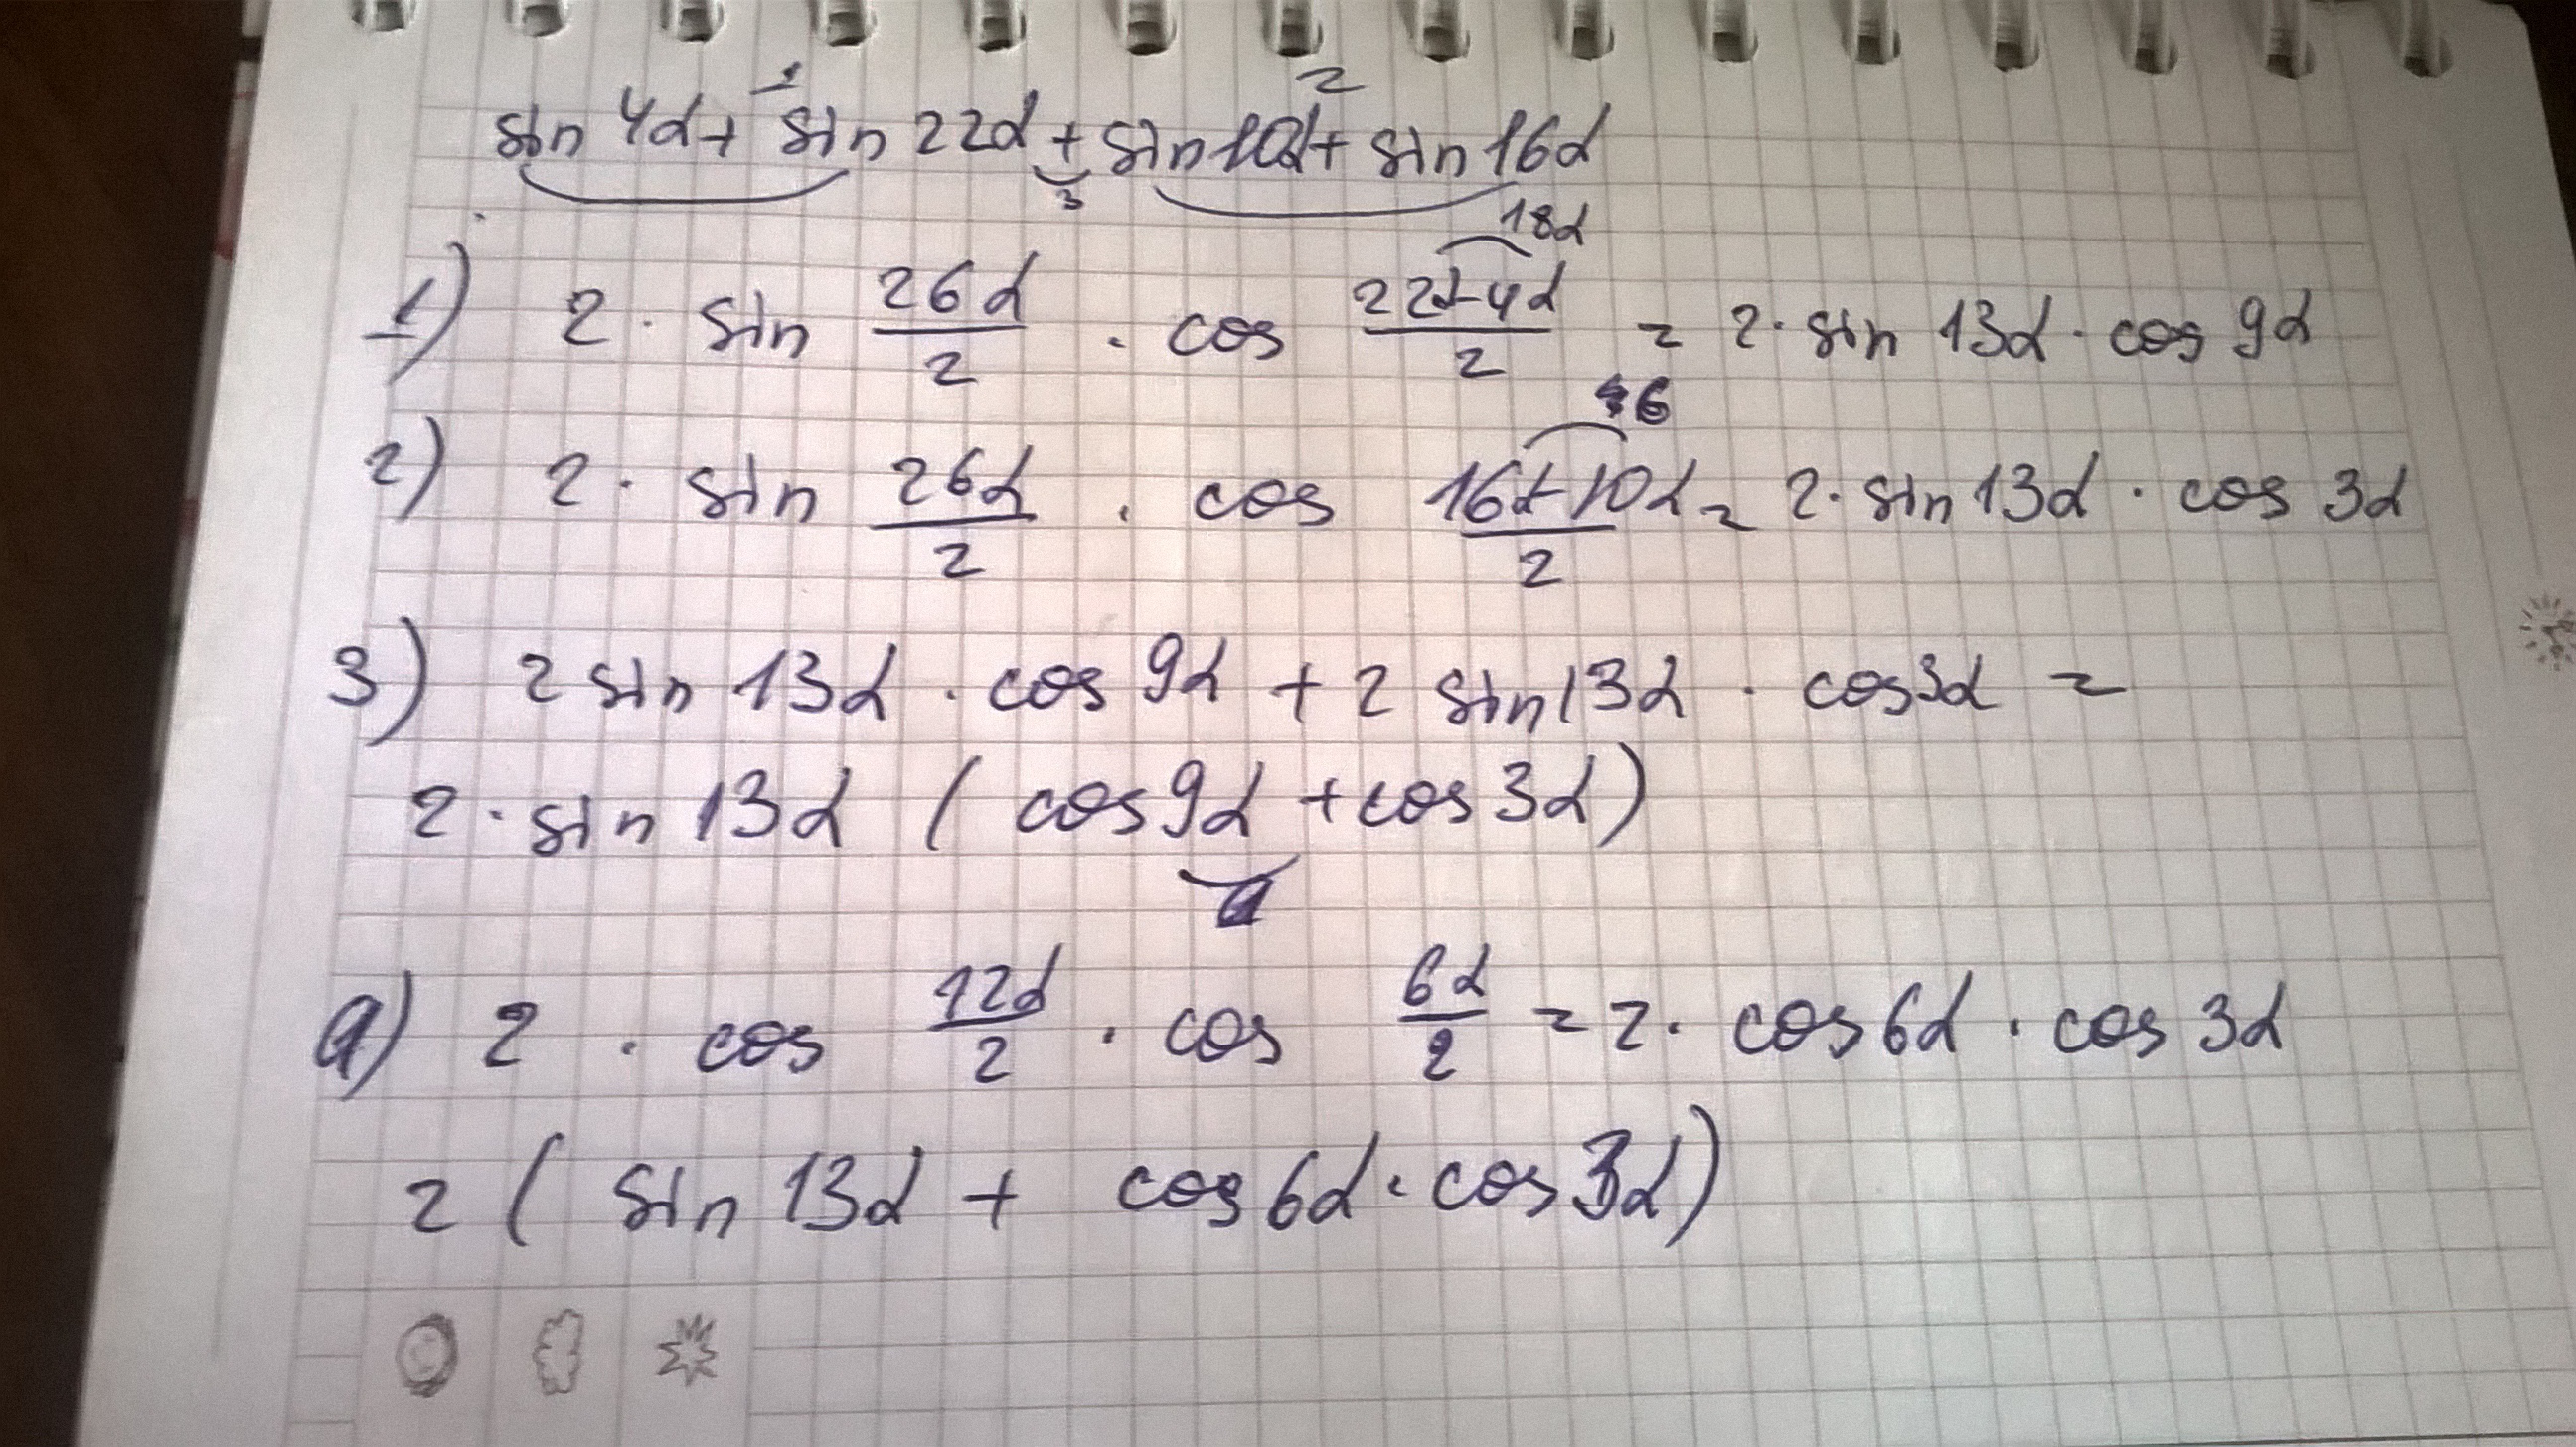 1 2
sin 4α + sin 22α + sin 10α + sin 16α
3
18α
1) 2 · sin 26α/2 · cos 22α-4α/2 = 2 · sin 13α · cos 9α
6
2) 2 · sin 26α/2 · cos 16α-10α/2 = 2 · sin 13α · cos 3α
3) 2 sin 13α · cos 9α + 2 sin 13α · cos 3α =
2 · sin 13α ( cos 9α + cos 3α )
a
a) 2 · cos 12α/2 · cos 6α/2 = 2 · cos 6α · cos 3α
2 ( sin 13α + cos 6α · cos 3α )